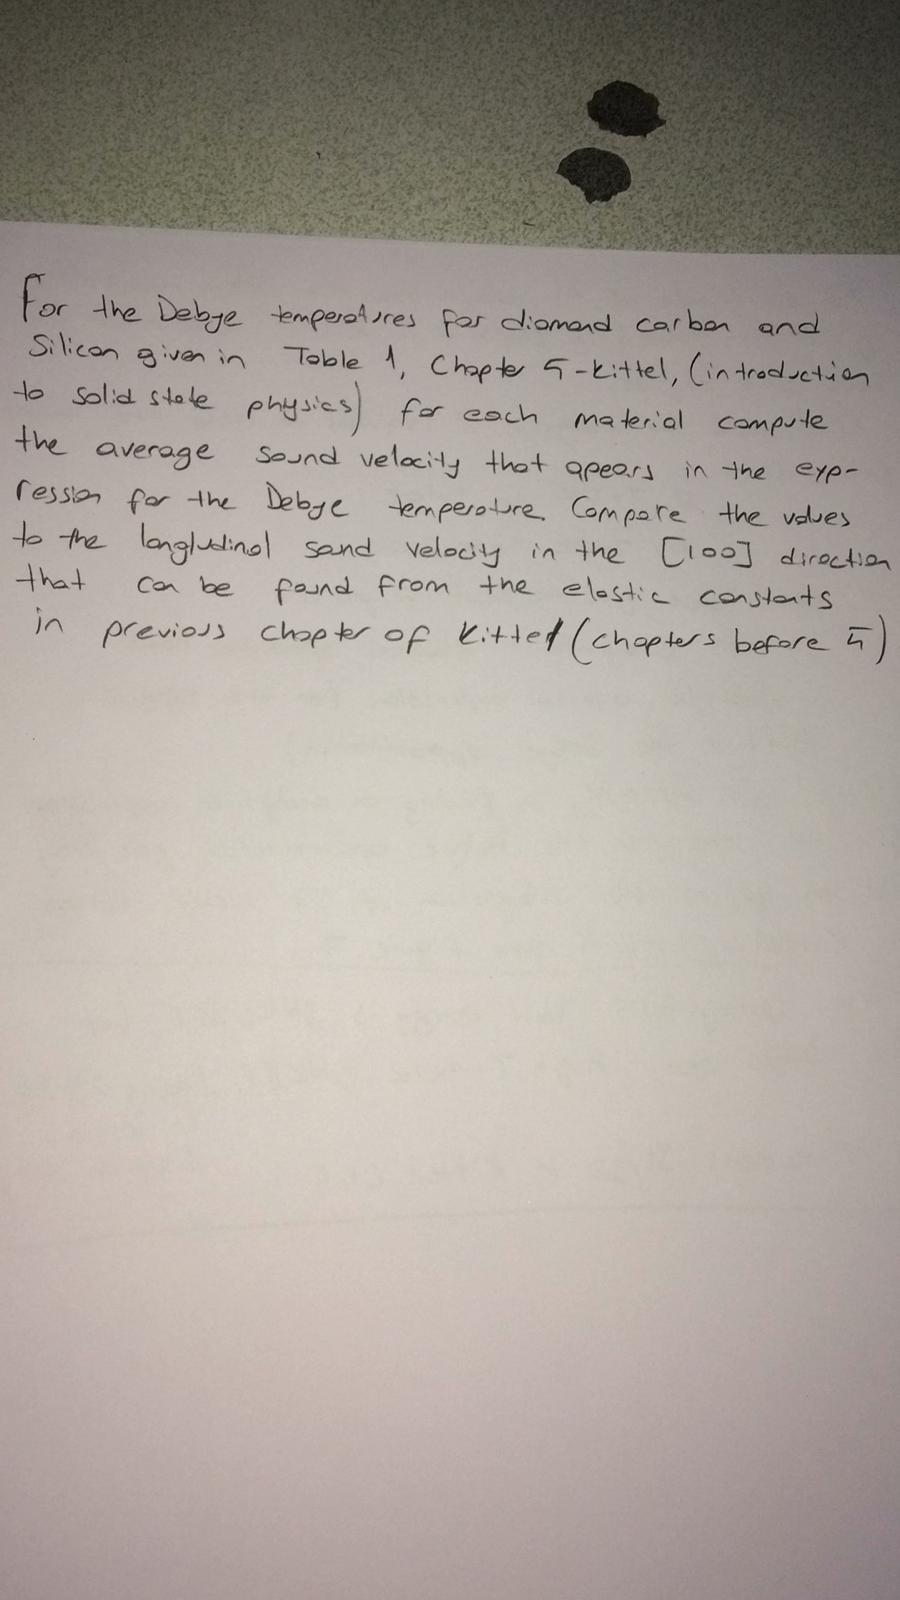 For the Debye temperatures for diamond carbon and
Silicon given in Table 1, Chapter 5-Kittel, (introduction
to solid state physics) for each material compute
the average sound velocity that apears in the exp-
ression for the Debye temperature. Compare the values
to the longludinal sound velocity in the [100] direction
that can be found from the elastic constants
in previous chapter of Kittel (chapters before 5)